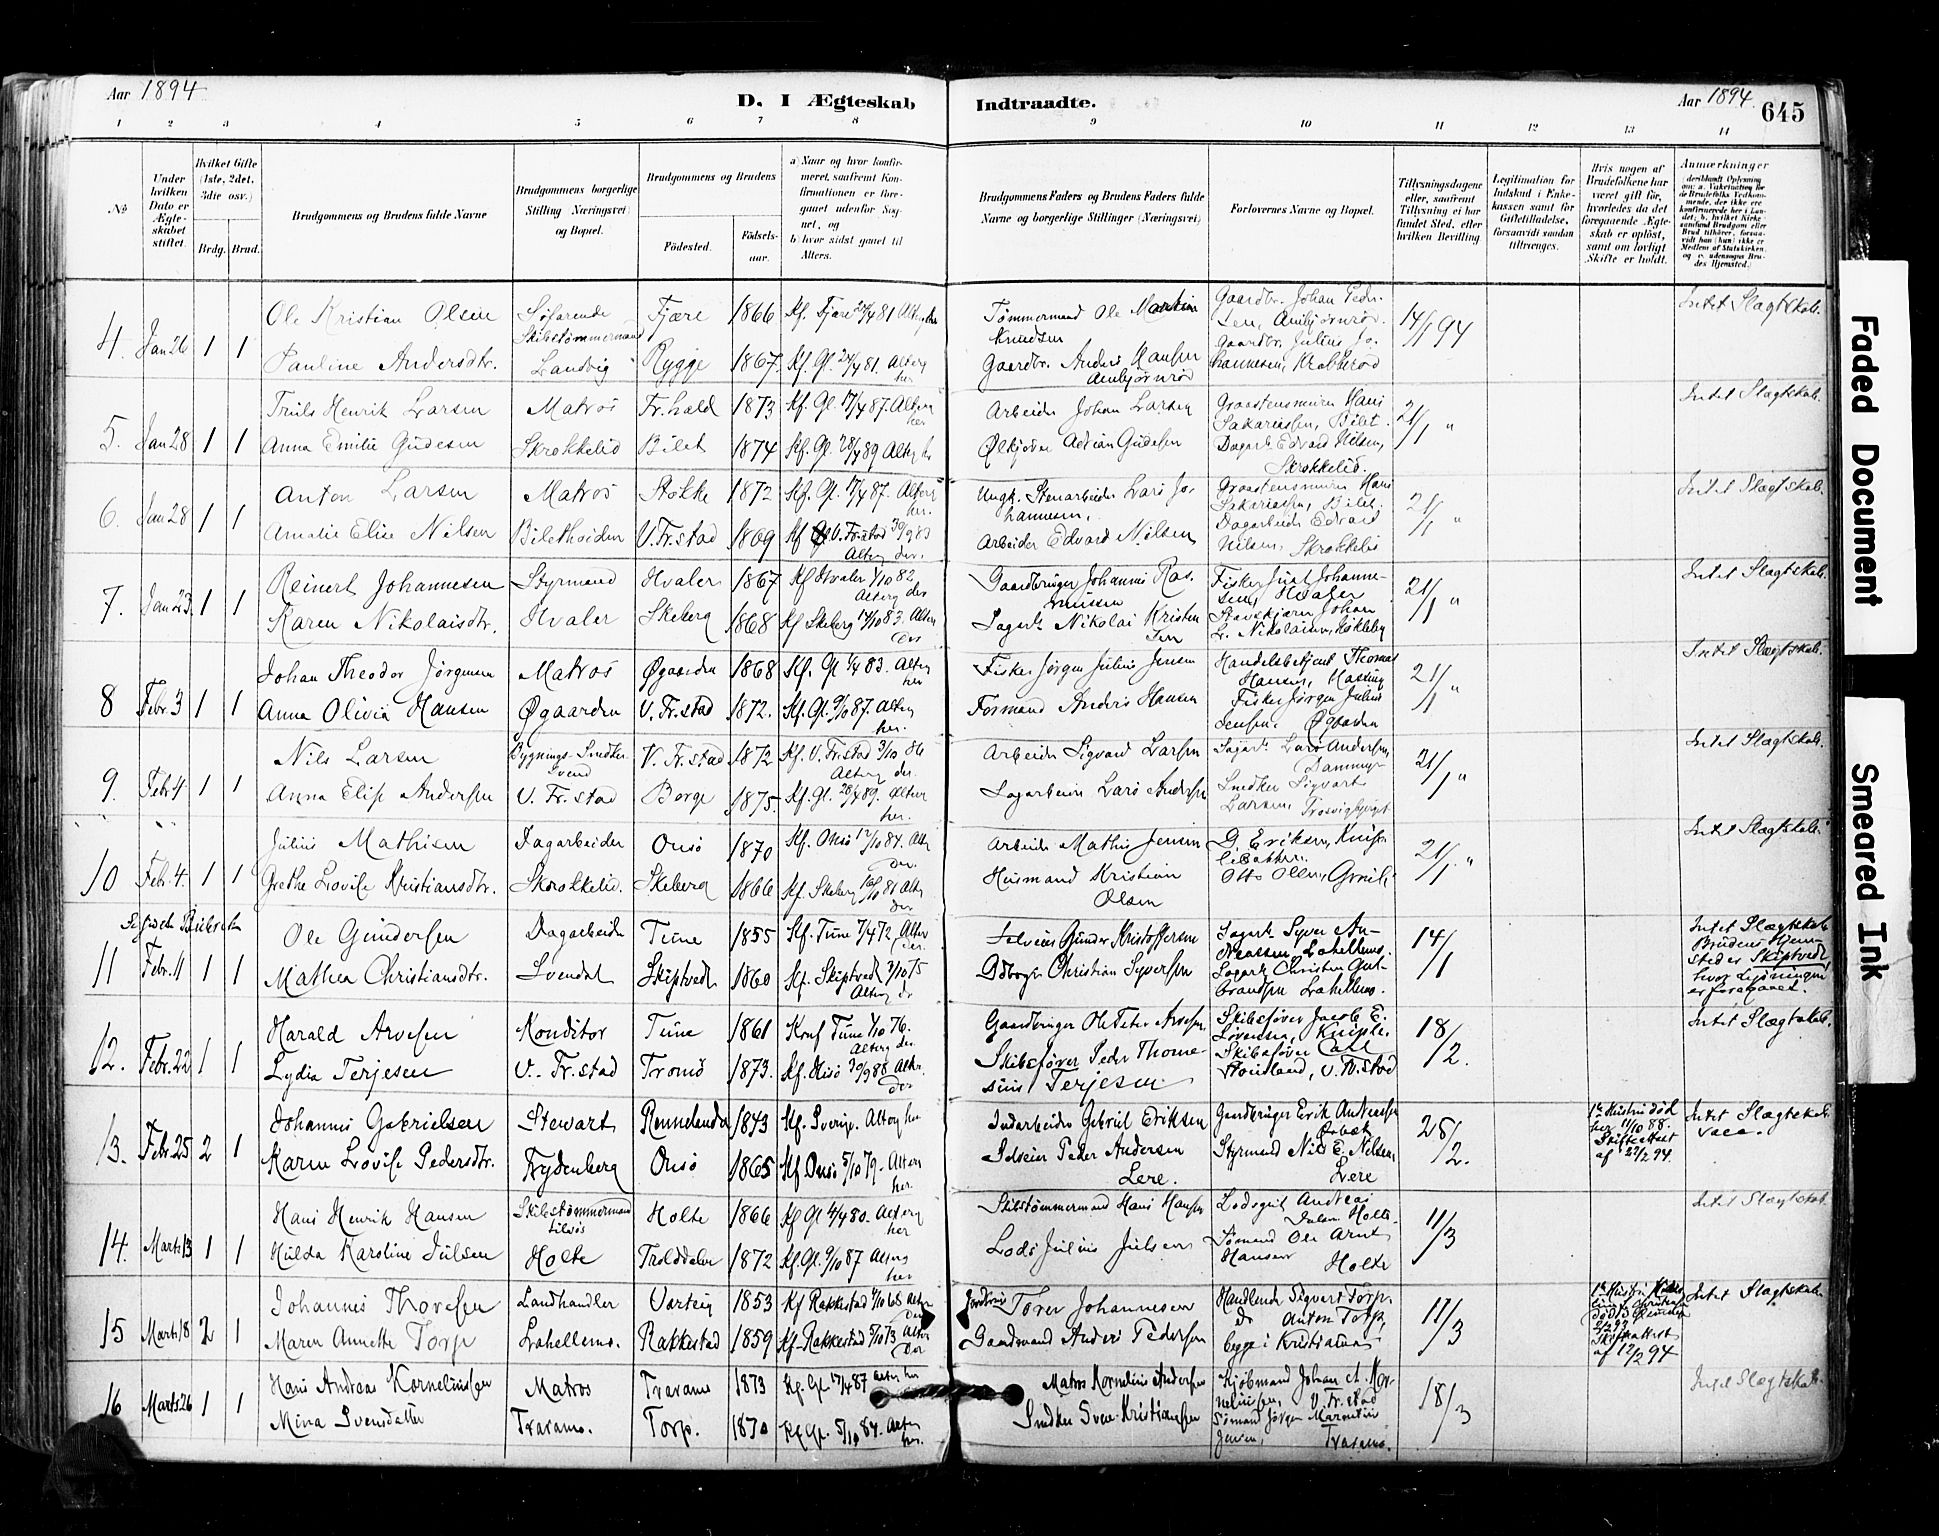 Aar 1894
D. I Ægteskab
Indtraadte.
Aar 1894.
645
1 2 3 4 5 6 7 8 9 10 11 12 13 14
№
Under hvilken Dato er Ægteskabet stiftet.
Hvilket Gifte (1ste, 2det, 3die osv.)
Brdg. Brud.
Brudgommens og Brudens fulde Navne
Brudgommens borgerlige Stilling (Næringsvei) og Bopæl.
Brudgommens og Brudens
Fødested.
Fødselsaar.
a) Naar og hvor konfirmeret, saafremt Konfirmationen er foregaaet udenfor Sognet, og
b) hvor sidst gaaet til Alters.
Brudgommens Faders og Brudens Faders fulde Navne og borgerlige Stillinger (Næringsvei)
Forlovernes Navne og Bopæl.
Tillysningsdagene eller, saafremt Tillysning ei har fundet Sted, efter hvilken Bevilling
Legitimation for Indskud i Enkekassen samt for Giftetilladelse, forsaavidt saadan tiltrænges.
Hvis nogen af Brudefolkene har været gift før, hvorledes da det foregaaende Ægteskab er opløst, samt om lovligt Skifte er holdt.
Anmærkninger
4. Jan 26 1 1
Ole Kristian Olsen
Søfarende Skibstømmermand
Fjære 1866 Kf. Fjære 24/4 81
Tømmermand Ole Martin Knudsen
Gaardbr. Johan Pedersen, Ambjørnrød.
14/1 94
Intet Slægtskab.
Pauline Andersdtr.
Landvig
Rygge 1867 Kf. Gl. 24/4 81. Alterg her
Gaardbr. Anders Hansen Ambjørnrød
Gaardbr. Julius Johannesen, Krabberød
5. Jan 28 1 1
Truls Henrik Larsen
Matros
Fr.hald 1873 Kf. Gl. 17/4 87. Alterg her
Arbeider Johan Larsen
Graastensmurer Hans Sakariassen, Bilet.
21/1 "
Intet Slægtskab.
Anna Emilie Gudesen
Skrokkelid
Bilet 1874 Kf. Gl. 28/4 89 Alterg
Ølkjører Adrian Gudesen
Dagarb. Edvard Nilsen, Skrokkelid.
6. Jan 28 1 1
Anton Larsen
Matros
Stokke 1872 Kf. Gl. 17/4 87. Alterg her.
Ungk. Stenarbeider Lars Johannesen,
Graastensmurer Hans Sakariassen, Bilet.
21/1 "
Intet Slægtskab.
Amalie Elise Nilsen
Bilethøiden
V. Fr.stad 1869 Kf V. Frstad 30/9 83 Alterg der.
Arbeider Edvard Nilsen
Dagarbeider Edvard Nilsen, Skrokkelid
7. Jan 23 1 1
Reinert Johannesen
Styrmand
Hvaler 1867 Kf Hvaler 1/10 82 Alterg der
Gaardbruger Johannes Rasmussen
Fisker Just Johannesen, Hvaler
21/1 "
Intet Slægtskab.
Karen Nikolaisdtr.
Hvaler
Skeberg 1868 Kf Skeberg 14/10 83. Alterg der
Dagarb. Nikolai Kristensen
Johan L. Nikolaisen, Kokleby
8 Febr. 3 1 1
Johan Theodor Jørgensen
Matros
Øgaarden 1868 Kf. Gl 1/4 83. Alterg her
Fisker Jørgen Julius Jensen
Handelsbetjent Thomas Hansen,
21/1 "
Intet Slægtskab.
Anna Olivia Hansen
Øgaarden
V. Fr.stad 1872. Kf. Gl. 9/10 87. Alterg her.
Formand Anders Hansen
Fisker Jørgen Julius Jensen, Øgaarden
9. Febr 4. 1 1
Nils Larsen
Bygnings-Snedker Svend
V. Fr.stad 1872 Kf. V. Fr.stad 3/10 86 Alterg der.
Arbeider Sigvard Larsen
Dagarb. Lars Andersen,
21/1 "
Intet Slægtskab.
Anna Elise Andersen
V. Fr.stad
Borge 1875. Kf. Gl. 28/4 89. Alterg her.
Dagarbeider Lars Andersen
Snedker Sigvart Larsen, Trosvigbjerget
10 Febr. 4. 1 1
Julius Mathisen
Dagarbeider
Onsø 1870 Kf. Onsø 12/10 84. Alterg der.
Arbeider Mathis Jensen
D. Eriksen, Kniplebakken.
21/1 "
Intet Slægtskab.
Grethe Lovise Kristiansdtr.
Skrokkelid.
Skeberg 1866 Kf. Skeberg 16/10 81 Alterg der
Husmand Kristian Olsen
Otto Olsen,
11 Febr. 11 1 1
Ole Gundersen
Dagarbeider
Tune 1855 Kf. Tune 7/4 72, Alter der.
Selveier Gunder Kristoffersen
Dagarb. Syver Andreassen Lahellems.
14/1
Intet Slægtskab Brudens Hjemsted er Skiptvedt, hvor Lysningen er foretaget.
Mathea Christiansdtr.
Svendal
Skiptvedt 1860 Kf. Skiptvedt 3/10 75 Alterg der
Christian Syversen
Dagarb. Christen Gulbrandsen Lahellems.
12. Febr. 22 1 1
Harald Arvesen
Konditor
Tune 1861 Konf Tune 1/10 76. Alterg der.
Gaardbruger Ole Peter Arvesen
Skibsfører Jacob E. Sørensen, Kniple.
18/2.
Intet Slægtskab.
Lydia Terjesen
V. Fr.stad
Tromø 1873. Kf. Hisø 30/9 88 Alter. der
Skibsfører Peder Thomesius Terjesen
Skibsfører Carl V. Fr.stad
13. Febr. 25 2 1
Johannes Gabrielsen
Stewart
1843 Kf. Sverige. Alterg her
Indarbeider Gabriel Eriksen
Gaardbruger Erik Andreasen
25/2.
1te Hustru død her 11/10 88. Skifteattest af 22/2 94.
Intet Slægtskab
Karen Lovise Pedersdtr.
Frydenberg
Onsø 1865 Kf. Onsø 5/10 79. Alterg her.
Selveier Peder Andersen Lere.
Styrmand Nils E. Nilsen, Lere
14. Marts 13 1 1
Hans Henrik Hansen
Skibstømmermand tilsøs
Holte 1866 Kf Gl 4/4 80. Alterg her
Skibstømmermand Hans Hansen
Lodsgut Andreas Julsen Holte.
11/3
Intet Slægtskab.
Hilda Karoline Julsen
Holte
Trolddalen 1872 Kf. Gl. 9/10 87 Alterg her
Lods Julius Julsen
Sømand Ole Arnt Hansen Holte
15 Marts 18 2 1
Johannes Thoresen
Landhandler
Varteig 1853 Kf Rakkestad 4/10 68 Alter der
Torer Johannesen
Handlende Sigvert Torp.
11/3
Skifteattest af 12/2 94
Intet Slægtskab
Maren Annette Torp
Lahellems.
Rakkestad 1859 Kf. Rakkestad 5/10 73 Alter der
Gaardmand Anders Pedersen
do Anton Torp, begge i Kristiania
16 Marts 26 1 1
Hans Andreas Korneliussen
Matros
Traramo 1873 Kf. Gl 17/4 87 Alter her
Matros Kornelius Andersen
Kjøbmand Johan A. Korneliussen, V. Fr.stad
18/3
Intet Slægtskab.
Mina Svensdatter
Traramo.
Torp. 1870 Kf Gl. 5/10 84. Alter her.
Snedker Sven Kristiansen
Sømand Jørgen Martin Jensen, Traramo.
Faded Document
Smeared Ink